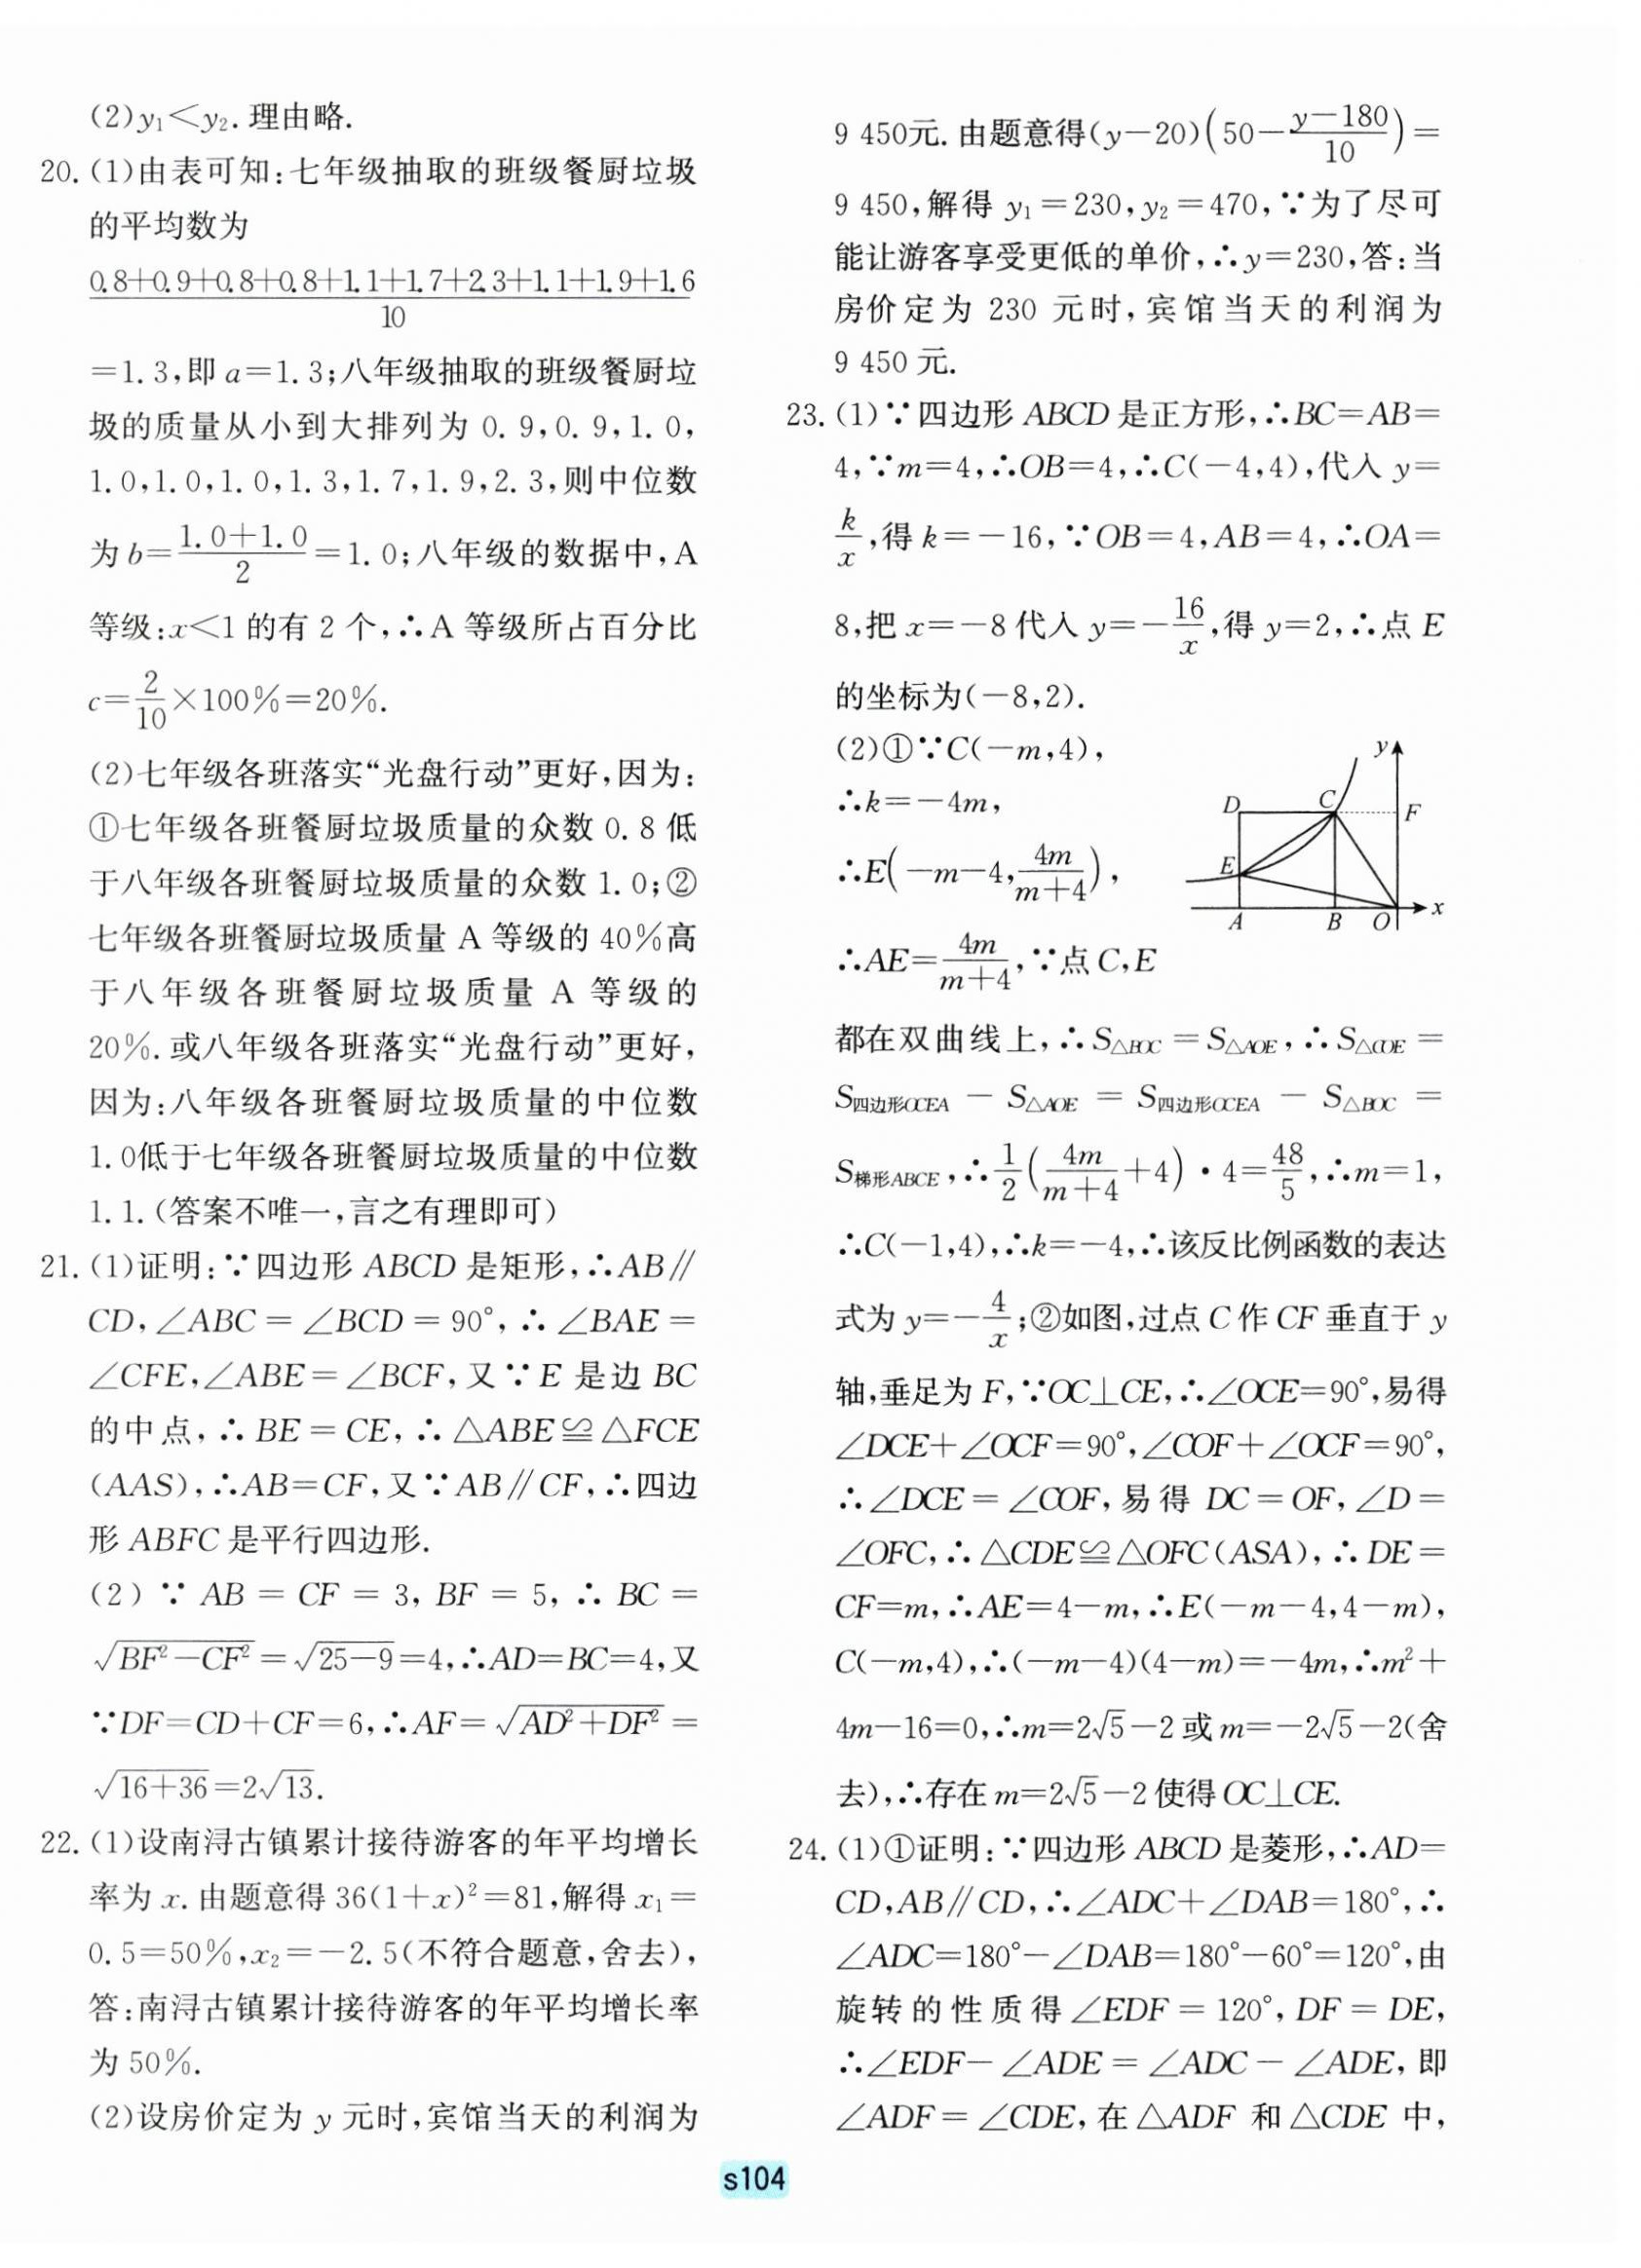 (2)y₁<y₂. 理由略.
20. (1)由表可知:七年级抽取的班级餐厨垃圾
的平均数为
(0.8+0.9+0.8+0.8+1.1+1.7+2.3+1.1+1.9+1.6)/10
=1.3,即 a=1.3;八年级抽取的班级餐厨垃
圾的质量从小到大排列为 0.9,0.9,1.0,
1.0,1.0,1.0,1.3,1.7,1.9,2.3,则中位数
为 b=(1.0+1.0)/2=1.0;八年级的数据中,A
等级:x<1 的有 2 个,∴A 等级所占百分比
c=2/10×100%=20%.
(2)七年级各班落实“光盘行动”更好,因为:
①七年级各班餐厨垃圾质量的众数 0.8 低
于八年级各班餐厨垃圾质量的众数 1.0;②
七年级各班餐厨垃圾质量 A 等级的 40%高
于八年级各班餐厨垃圾质量 A 等级的
20%. 或八年级各班落实“光盘行动”更好,
因为:八年级各班餐厨垃圾质量的中位数
1.0低于七年级各班餐厨垃圾质量的中位数
1.1. (答案不唯一,言之有理即可)
21. (1)证明:∵四边形 ABCD 是矩形,∴AB∥
CD,∠ABC=∠BCD=90°,∴∠BAE=
∠CFE,∠ABE=∠BCF,又∵E 是边 BC
的中点,∴BE=CE,∴△ABE≌△FCE
(AAS),∴AB=CF,又∵AB∥CF,∴四边
形 ABFC 是平行四边形.
(2)∵AB=CF=3,BF=5,∴BC=
√(BF²−CF²)=√(25−9)=4,∴AD=BC=4,又
∵DF=CD+CF=6,∴AF=√(AD²+DF²)=
√(16+36)=2√13.
22. (1)设南浔古镇累计接待游客的年平均增长
率为 x. 由题意得 36(1+x)²=81,解得 x₁=
0.5=50%,x₂=−2.5(不符合题意,舍去),
答:南浔古镇累计接待游客的年平均增长率
为 50%.
(2)设房价定为 y 元时,宾馆当天的利润为
9 450元. 由题意得(y−20)(50−(y−180)/10)=
9 450,解得 y₁=230,y₂=470,∵为了尽可
能让游客享受更低的单价,∴y=230,答:当
房价定为 230 元时,宾馆当天的利润为
9 450 元.
23. (1)∵四边形 ABCD 是正方形,∴BC=AB=
4,∵m=4,∴OB=4,∴C(−4,4),代入 y=
k/x,得 k=−16,∵OB=4,AB=4,∴OA=
8,把 x=−8 代入 y=−16/x,得 y=2,∴点 E
的坐标为(−8,2).
(2)①∵C(−m,4),
∴k=−4m,
∴E(−m−4,4m/(m+4)),
∴AE=4m/(m+4),∵点 C,E
y
D C F
E
A B O x
都在双曲线上,∴S△BOC=S△AOE,∴S△COE=
S四边形OCEA−S△AOE=S四边形OCEA−S△BOC=
S梯形ABCE,∴1/2(4m/(m+4)+4)·4=48/5,∴m=1,
∴C(−1,4),∴k=−4,∴该反比例函数的表达
式为 y=−4/x;②如图,过点 C 作 CF 垂直于 y
轴,垂足为 F,∵OC⊥CE,∴∠OCE=90°,易得
∠DCE+∠OCF=90°,∠COF+∠OCF=90°,
∴∠DCE=∠COF,易得 DC=OF,∠D=
∠OFC,∴△CDE≌△OFC(ASA),∴DE=
CF=m,∴AE=4−m,∴E(−m−4,4−m),
C(−m,4),∴(−m−4)(4−m)=−4m,∴m²+
4m−16=0,∴m=2√5−2 或 m=−2√5−2(舍
去),∴存在 m=2√5−2 使得 OC⊥CE.
24. (1)①证明:∵四边形 ABCD 是菱形,∴AD=
CD,AB∥CD,∴∠ADC+∠DAB=180°,∴
∠ADC=180°−∠DAB=180°−60°=120°,由
旋转的性质得∠EDF=120°,DF=DE,
∴∠EDF−∠ADE=∠ADC−∠ADE,即
∠ADF=∠CDE,在△ADF 和△CDE 中,
s104